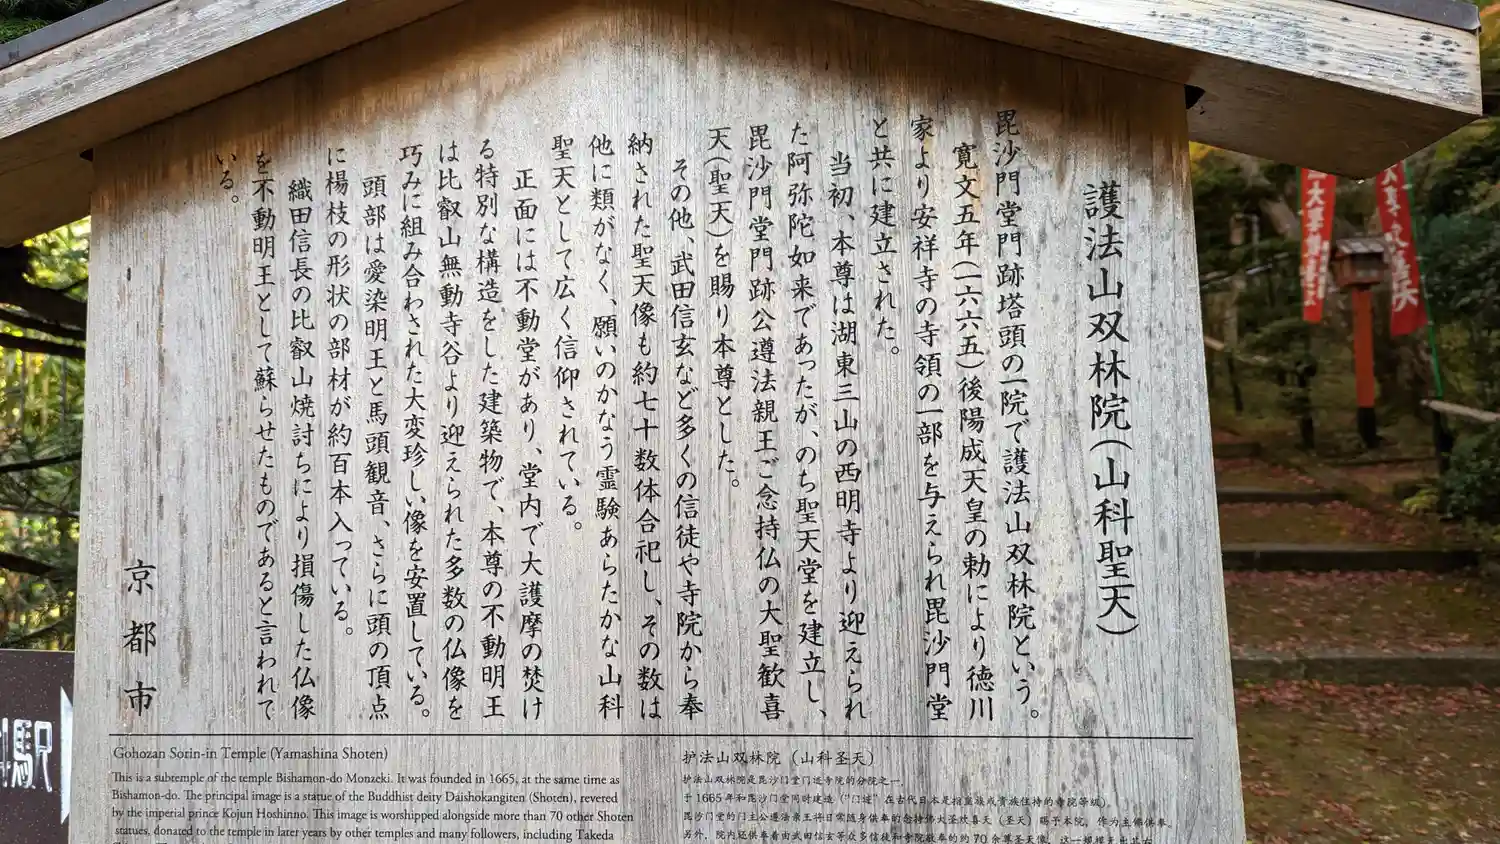 護法山双林院(山科聖天)
毘沙門堂門跡塔頭の一院で護法山双林院という。
寛文五年(一六六五)後陽成天皇の勅により徳川
家より安祥寺の寺領の一部を与えられ毘沙門堂
と共に建立された。
当初、本尊は湖東三山の西明寺より迎えられ
た阿弥陀如来であったが、のち聖天堂を建立し、
毘沙門堂門跡公遵法親王ご念持仏の大聖歓喜
天(聖天)を賜り本尊とした。
その他、武田信玄など多くの信徒や寺院から奉
納された聖天像も約七十数体合祀し、その数は
他に類がなく、願いのかなう霊験あらたかな山科
聖天として広く信仰されている。
正面には不動堂があり、堂内で大護摩の焚け
る特別な構造をした建築物で、本尊の不動明王
は比叡山無動寺谷より迎えられた多数の仏像を
巧みに組み合わされた大変珍しい像を安置している。
頭部は愛染明王と馬頭観音、さらに頭の頂点
に楊枝の形状の部材が約百本入っている。
織田信長の比叡山焼討ちにより損傷した仏像
を不動明王として蘇らせたものであると言われて
いる。
京都市
Gohozan Sorin-in Temple (Yamashina Shoten)
This is a subtemple of the temple Bishamon-do Monzeki. It was founded in 1665, at the same time as
Bishamon-do. The principal image is a statue of the Buddhist deity Daishokangiten (Shoten), revered
by the imperial prince Kojun Hoshinno. This image is worshipped alongside more than 70 other Shoten
statues, donated to the temple in later years by other temples and many followers, including Takeda
护法山双林院（山科圣天）
护法山双林院是毘沙门堂门迹寺院的分院之一，
于1665年和毘沙门堂同时建造（“门迹”在古代日本是指皇族或贵族住持的寺院等级）。
毘沙门堂的门主公遵法亲王将日常随身供奉的念持佛大圣欢喜天（圣天）赐予本院，作为主佛供奉。
另外，院内还供奉着由武田信玄等众多信徒和寺院敬奉的约70余尊圣天像，
駅